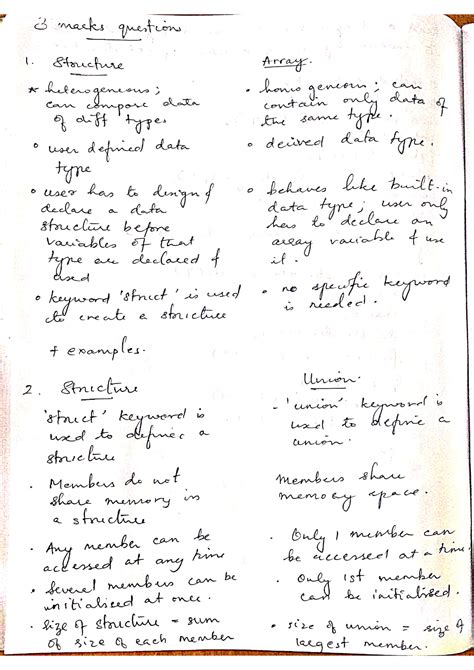 3 marks question
1. Structure
* heterogeneous;
can compare data
of diff types
o user defined data
type
o user has to design &
declare a data
structure before
variables of that
type are declared &
used
o keyword 'struct' is used
to create a structure
+ examples.
Array.
• homogeneous; can
contain only data of
the same type.
o derived data type.
o behaves like built-in
data type; user only
has to declare an
array variable & use
it.
o no specific keyword
is needed.
2. Structure
'struct' keyword is
used to define a
structure
. Members do not
share memory in
a structure
. Any member can be
accessed at any time
. Several members can be
initialised at once.
. size of structure = sum
of size of each member
Union.
- 'union' keyword is
used to define a
union.
Members share
memory space.
. Only 1 member can
be accessed at a time.
. Only 1st member
can be initialised.
. size of union = size of
largest member.